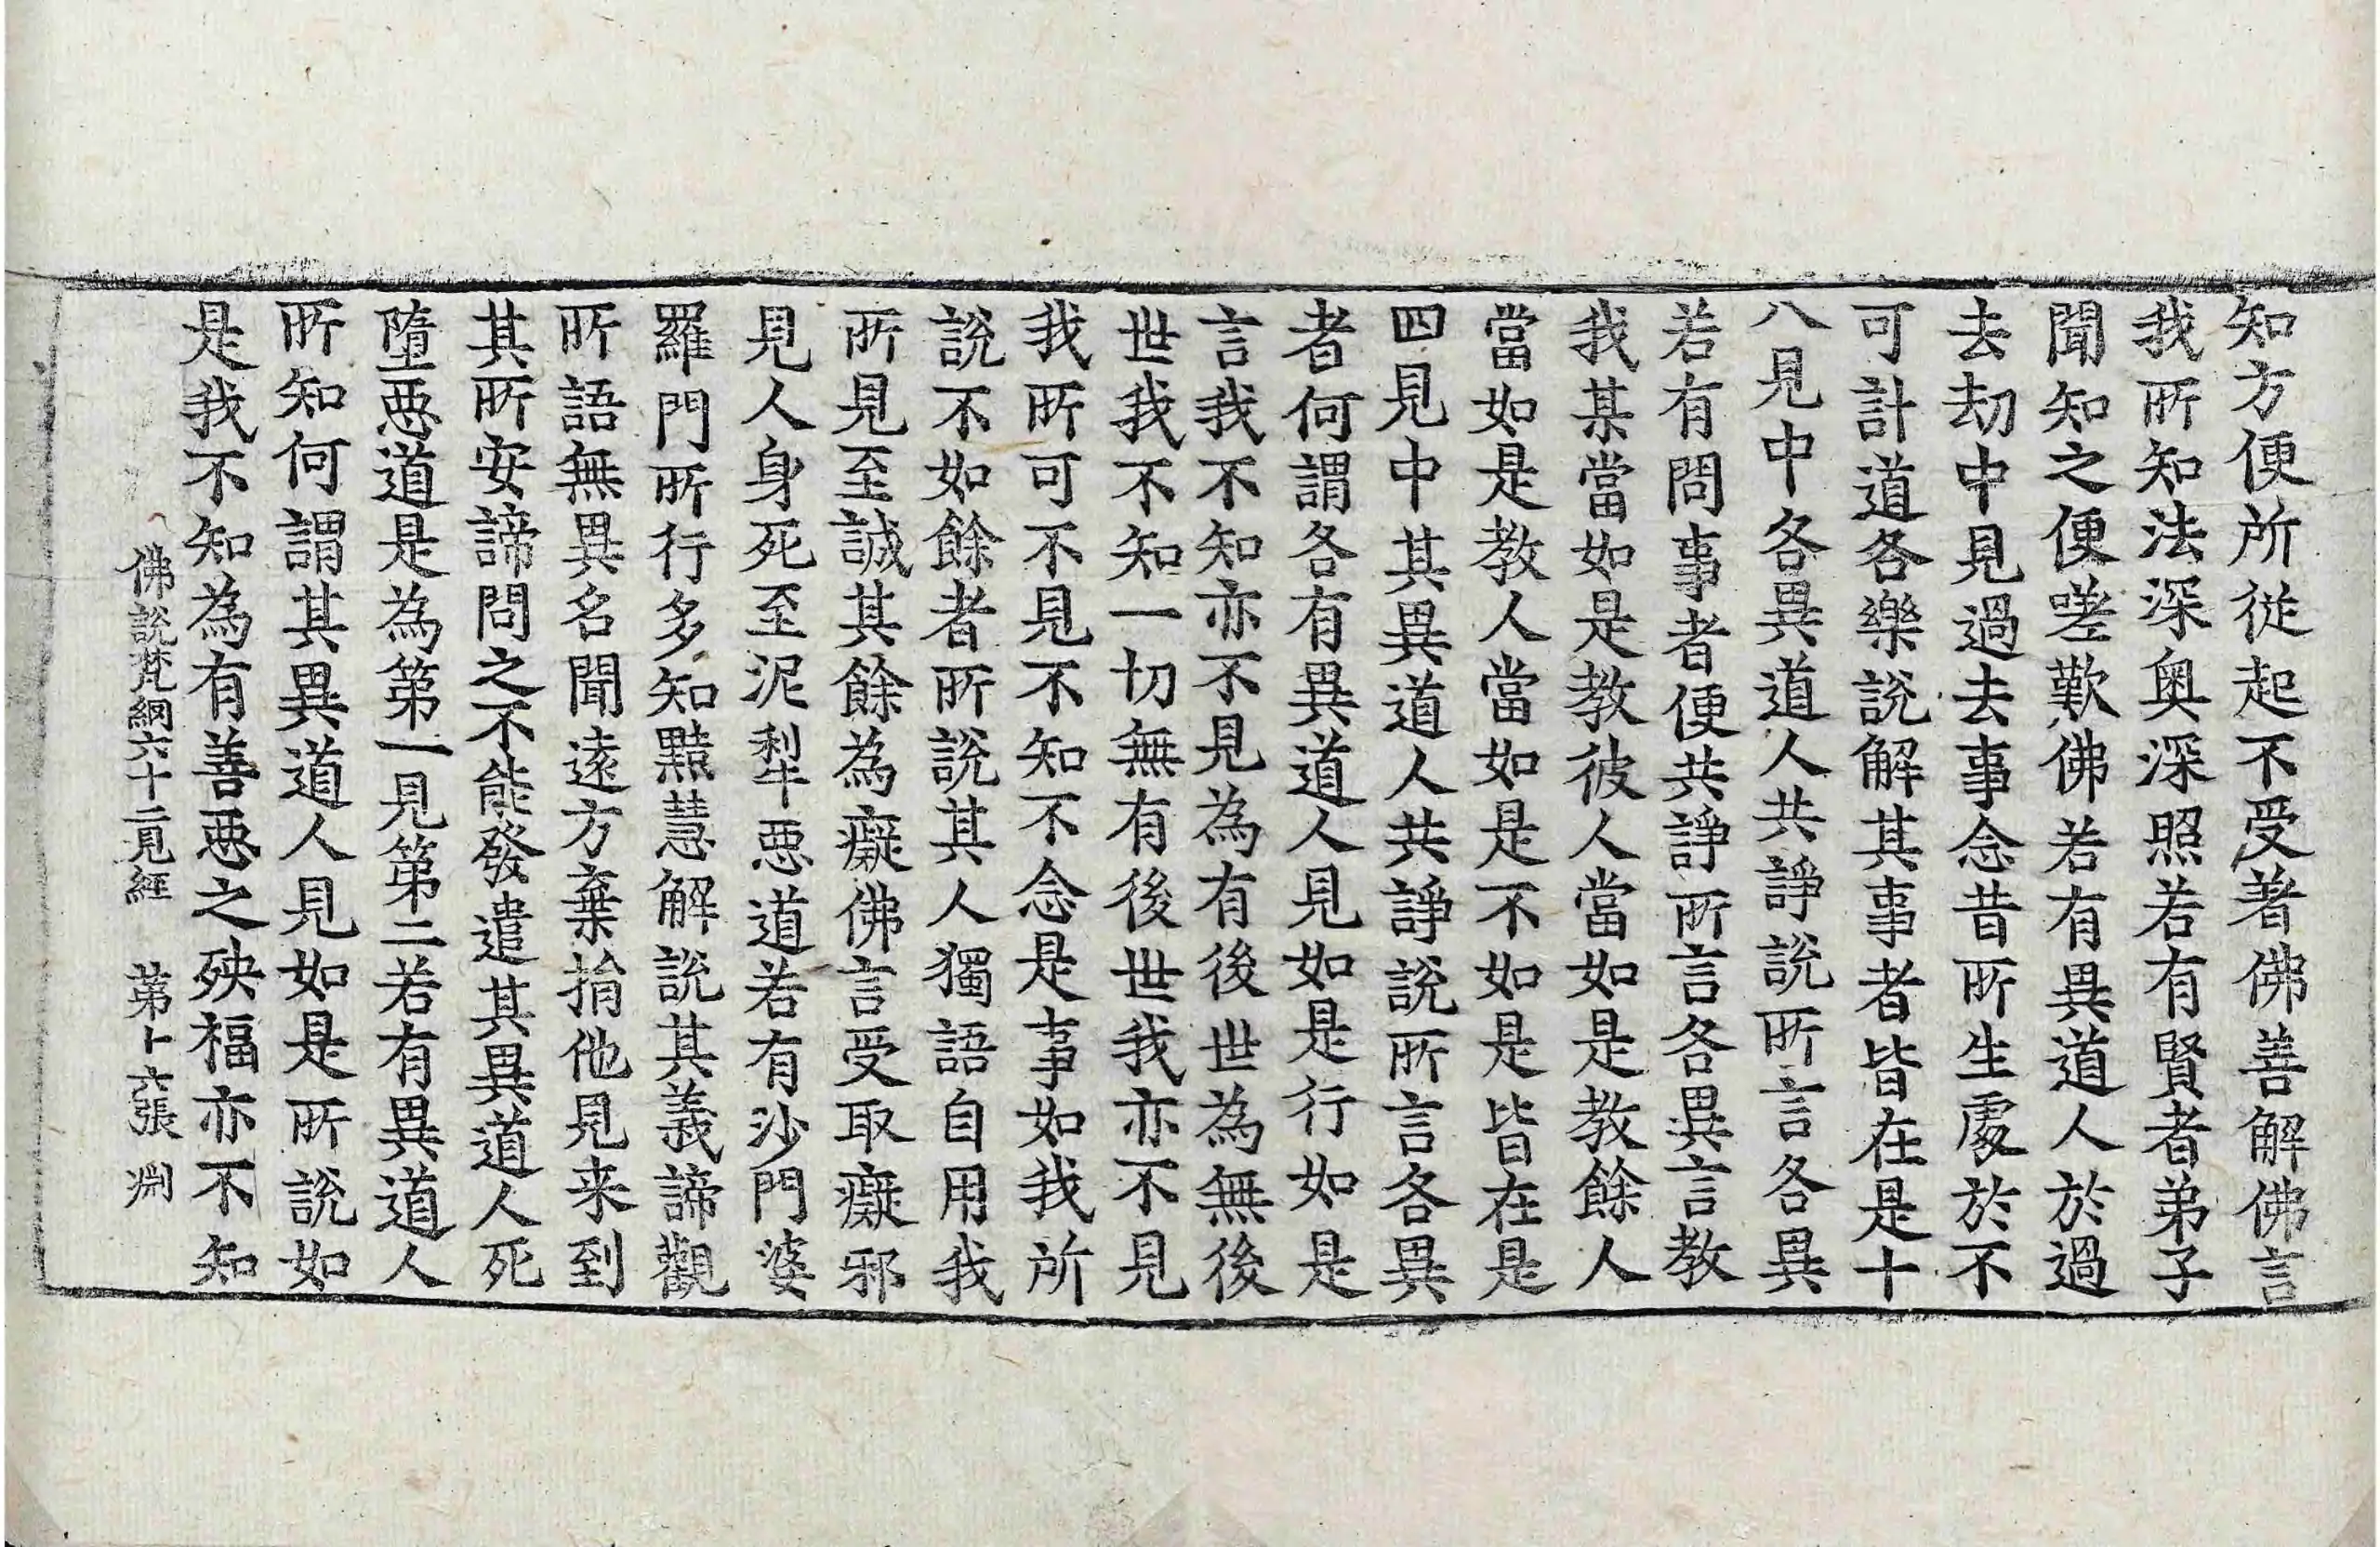 知方便所從起不受著佛善解佛言
我所知法深奧深照若有賢者弟子
聞知之便嗟歎佛若有異道人於過
去劫中見過去事念昔所生處於不
可計道各樂說解其事者皆在是十
八見中各異道人共諍說所言各異
若有問事者便共諍所言各異言教
我某當如是教彼人當如是教餘人
當如是教人當如是不如是皆在是
四見中其異道人共諍說所言各異
者何謂各有異道人見如是行如是
言我不知亦不見為有後世為無後
世我不知一切無有後世我亦不見
我所可不見不知不念是事如我所
說不如餘者所說其人獨語自用我
所見至誠其餘為癡佛言受取癡邪
見人身死至泥犁惡道若有沙門婆
羅門所行多知黠慧解說其義諦觀
所語無異名聞遠方棄捐他見来到
其所安諦問之不能發遣其異道人死
墮惡道是為第一見第二若有異道人
所知何謂其異道人見如是所說如
是我不知為有善惡之殃福亦不知
佛說梵網六十二見經 第十六張 淵